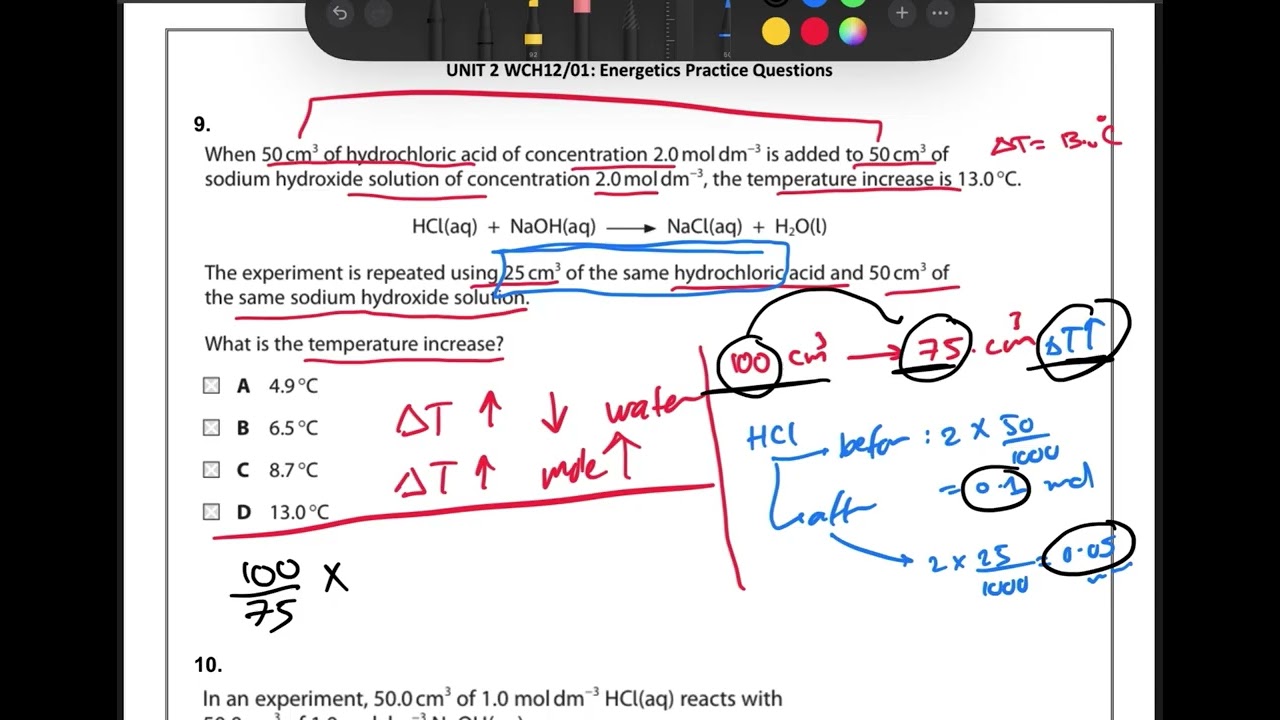 UNIT 2 WCH12/01: Energetics Practice Questions
9.
ΔT = 13.0°C
When 50 cm³ of hydrochloric acid of concentration 2.0 mol dm⁻³ is added to 50 cm³ of
sodium hydroxide solution of concentration 2.0 mol dm⁻³, the temperature increase is 13.0 °C.
HCl(aq) + NaOH(aq) ⟶ NaCl(aq) + H₂O(l)
The experiment is repeated using 25 cm³ of the same hydrochloric acid and 50 cm³ of
the same sodium hydroxide solution.
What is the temperature increase?
100 cm³ → 75 cm³ ΔT↑
A 4.9 °C
B 6.5 °C
C 8.7 °C
D 13.0 °C
ΔT ↑ ↓ water
ΔT ↑ mole ↑
HCl → befor : 2 × 50/1000
= 0.1 mol
aftr
→ 2 × 25/1000 = 0.05
100/75 ×
10.
In an experiment, 50.0 cm³ of 1.0 mol dm⁻³ HCl(aq) reacts with
50.0 cm³ of 1.0 mol dm⁻³ NaOH(aq)